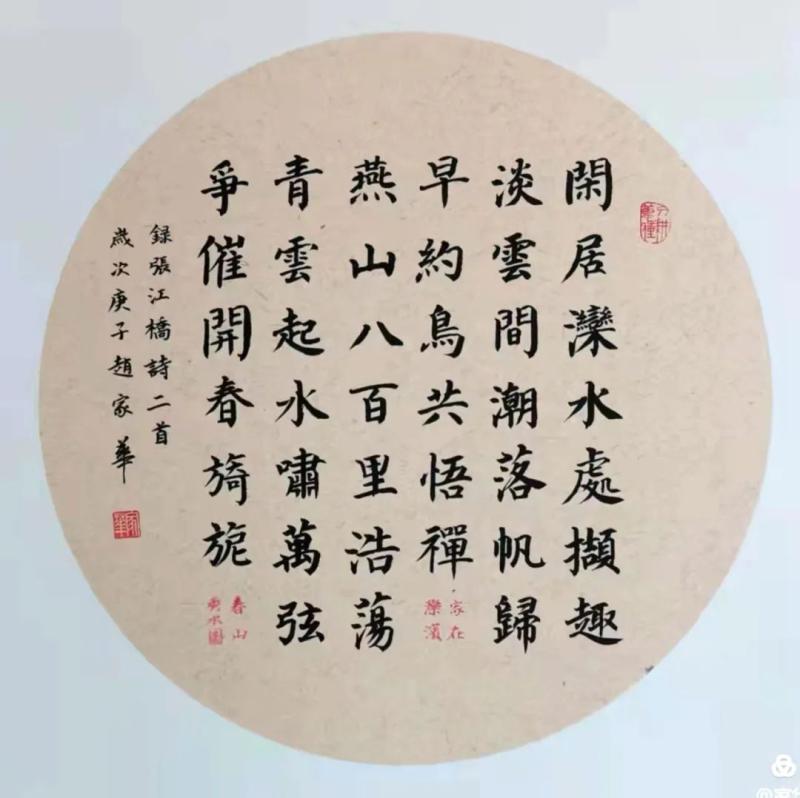 閑居灤水處擷趣
淡雲間潮落帆歸
早約鳥共悟禪
家在
灤濱
燕山八百里浩蕩
青雲起水嘯萬弦
爭催開春旖旎
春山
録張江橋詩二首
歲次庚子趙家華